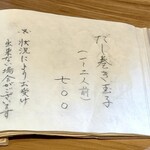 だし巻き玉子
(一・二人前)
七〇〇
※状況によりお受け
出来ない場合がございます